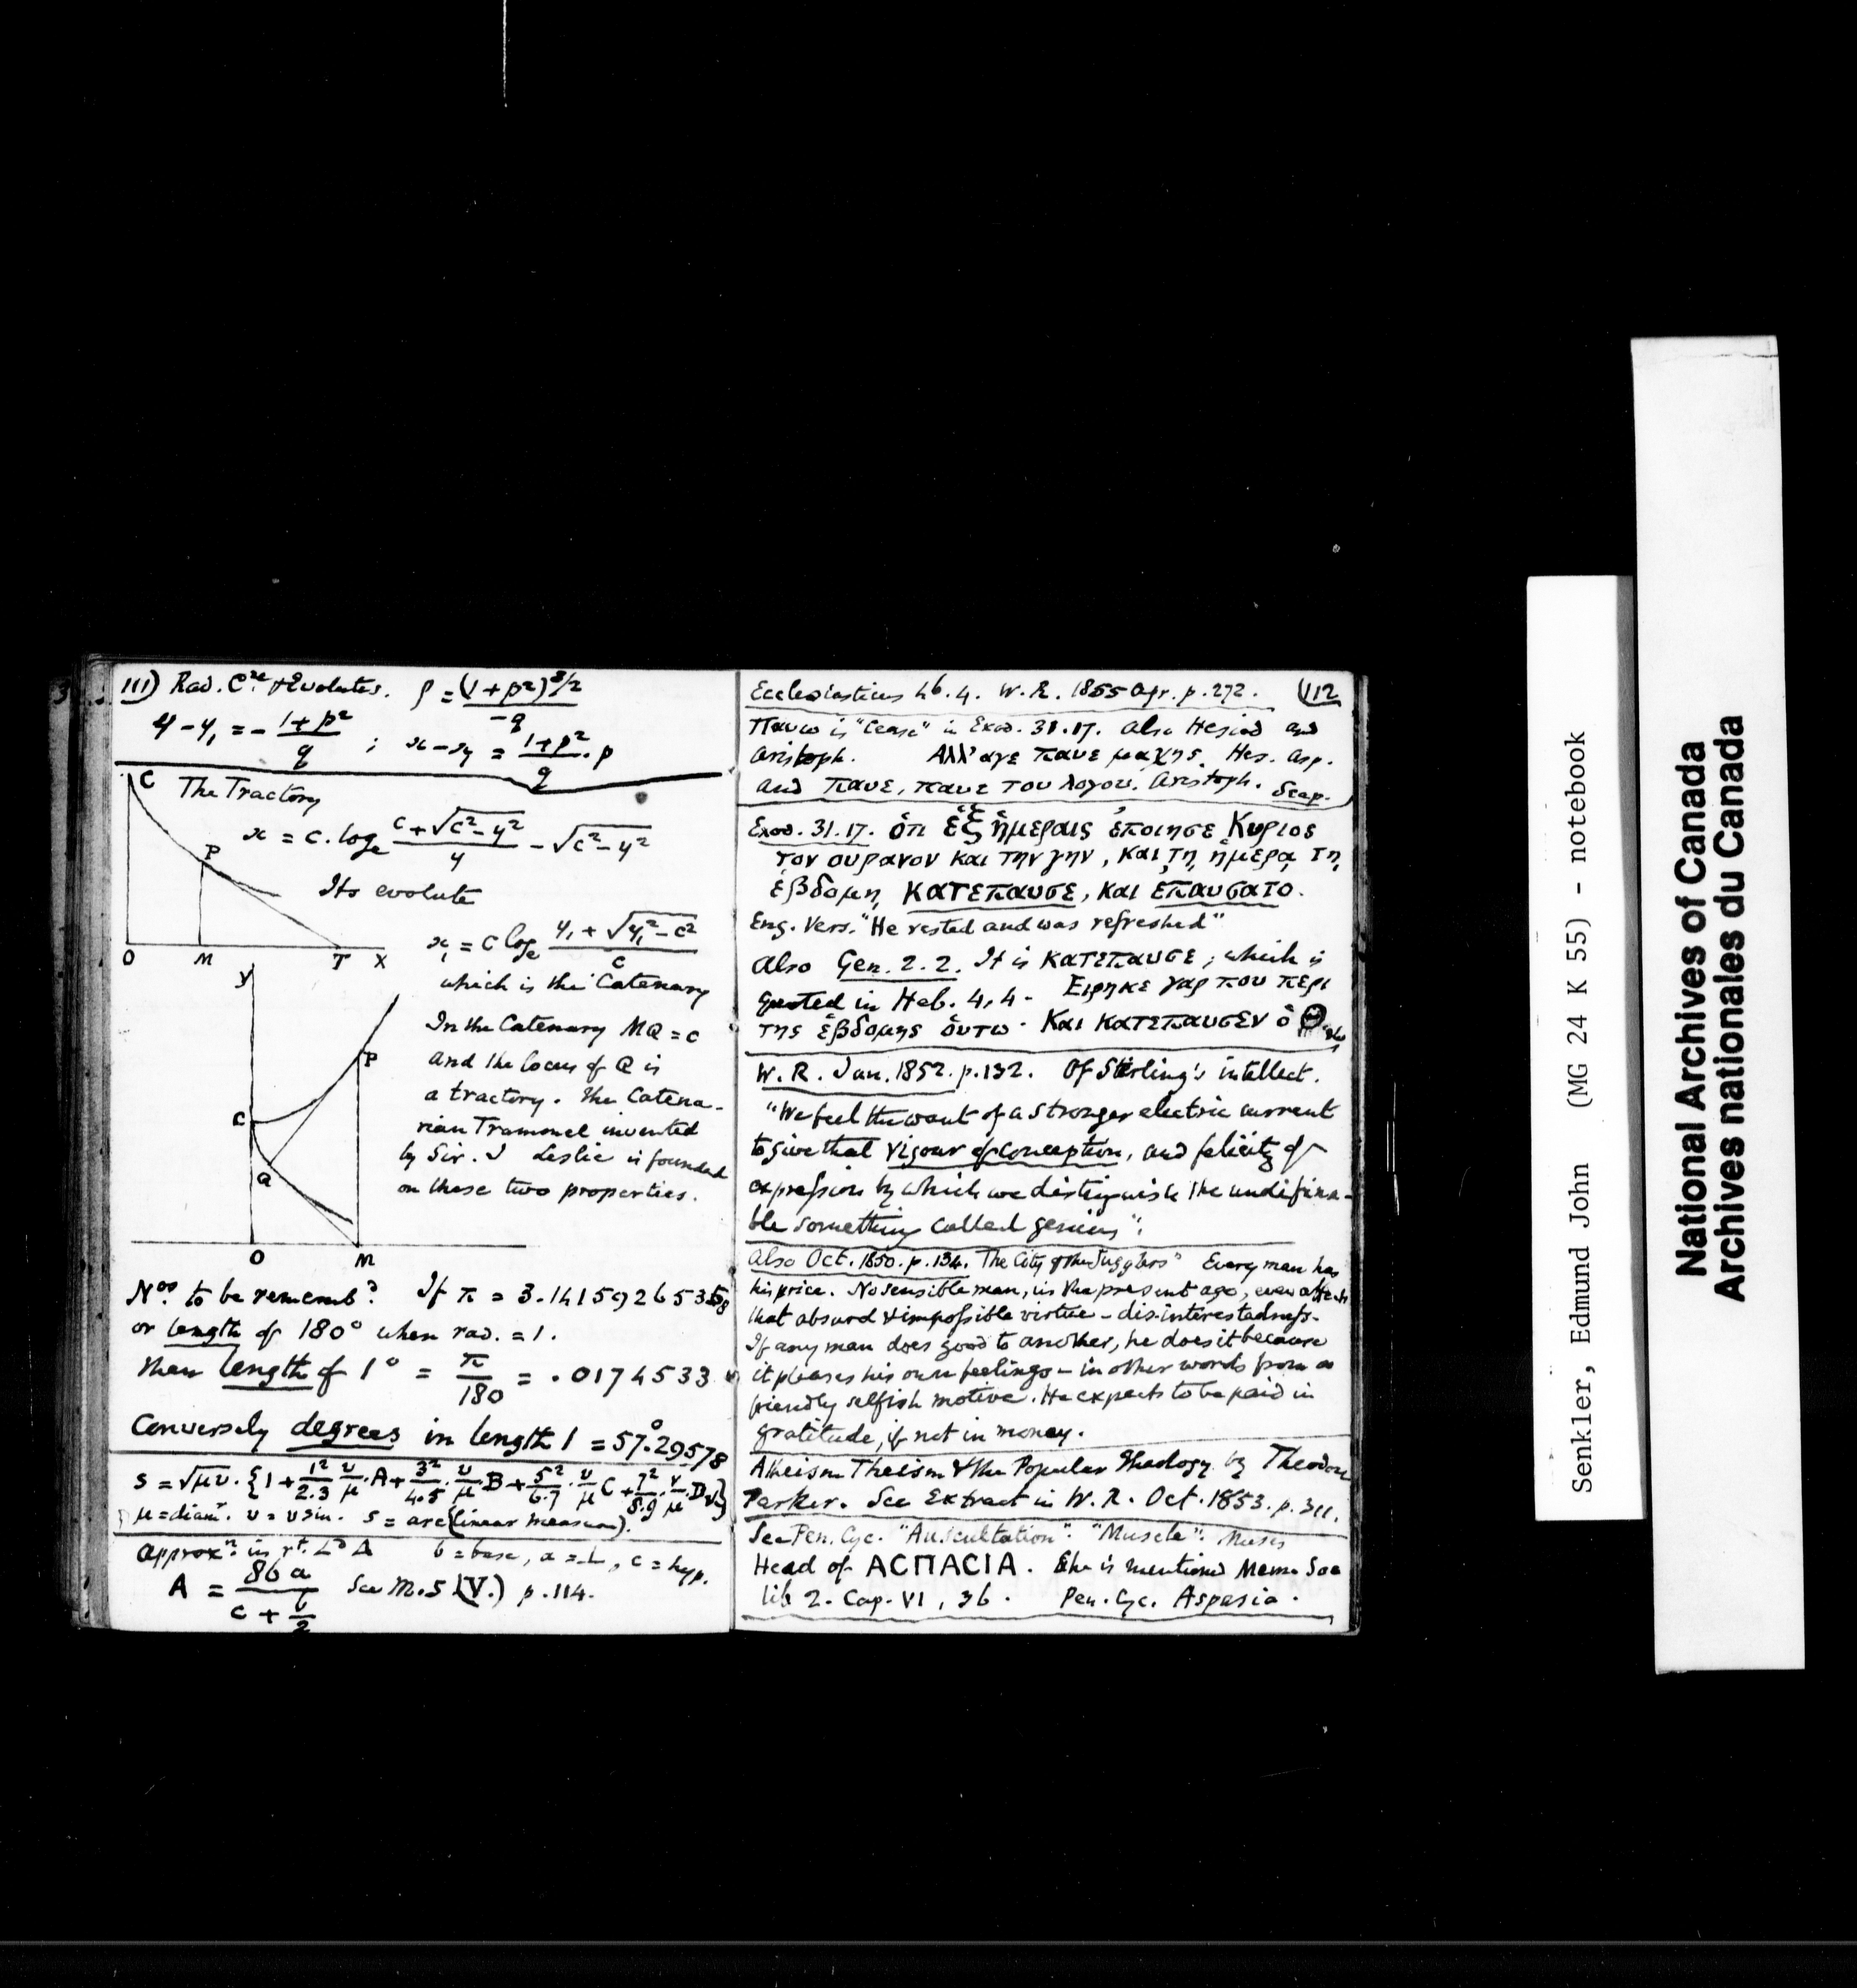 111) Rad. C^re. & Evolutes. ρ = (1+p²)^3/2 / -q
y - y₁ = - (1+p²)/q ; x - x₁ = (1+p²)/q . p
C
The Tractory
x = c. logₑ (c + √(c² - y²))/y - √(c² - y²)
P
Its evolute
x₁ = c logₑ (y₁ + √(y₁² - c²))/c
O M T X
which is the Catenary
y
In the Catenary MQ = c
P
and the locus of Q is
a tractory. The Catena-
C
rian Trammel invented
by Sir. J Leslie is founded
Q
on these two properties.
O M
N^os. to be rememb^d. If π = 3.14159265358
or length of 180° when rad. = 1.
then length of 1° = π/180 = .0174533
Conversely degrees in length 1 = 57°.29578
s = √μv . {1 + 1²/2.3 . v/μ . A + 3²/4.5 . v/μ . B + 5²/6.7 . v/μ C + 7²/8.9 . v/μ . D
μ = diam^r. v = v sin. s = arc (linear measure).
Approx^n. in r^t. ∠^d Δ b = base, a = ⊥, c = hyp.
A = 86 a / (c + b/2) See M.S (V.) p. 114.
Ecclesiasticus 46. 4. W. R. 1855 Apr. p. 272. (112
Παυω is "Cease" in Exod. 31. 17. Also Hesiod and
Aristoph. Αλλ' αγε παυε μαχης. Hes. Asp.
and παυε, παυε του λογου. Aristoph. Scap.
Exod. 31. 17. ὁτι ἑξ ἡμεραις ἐποιησε Κυριος
τον ουρανον και την γην, και τῃ ἡμερᾳ τῃ
ἑβδομῃ κατεπαυσε, και επαυσατο.
Eng. Vers. "He rested and was refreshed"
Also Gen. 2. 2. It is κατεπαυσε; which is
quoted in Heb. 4, 4. Ειρηκε γαρ που περι
της ἑβδομης ὁυτω. Και κατεπαυσεν ὁ
W. R. Jan. 1852. p. 132. Of Sterling's intellect.
"We feel the want of a stronger electric current
to give that vigour of conception, and felicity of
expression by which we distinguish the undefina-
ble something called genius".
Also Oct. 1850. p. 134. The City of the Jugglers" Every man has
his price. No sensible man, in the present age, even affects
that absurd & impossible virtue - dis-interestedness.
If any man does good to another, he does it because
it pleases his own feelings - in other words from a
friendly selfish motive. He expects to be paid in
gratitude, if not in money.
Atheism Theism & the Popular Theology by Theodore
Parker. See Extract in W. R. Oct. 1853. p. 311.
See Pen. Cyc. "Auscultation". "Muscle". Music
Head of ΑСΠΑСΙΑ. She is mentioned Mem. Soc
lib 2. Cap. VI, 36. Pen. Cyc. Aspasia.
Senkler, Edmund John (MG 24 K 55) - notebook
National Archives of Canada
Archives nationales du Canada